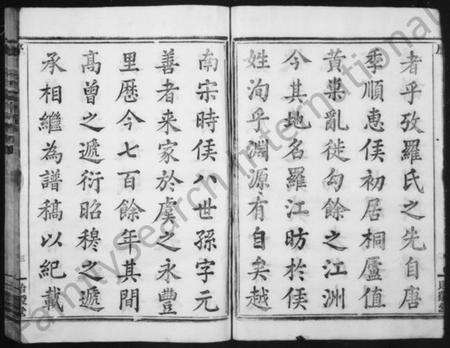 者乎攷羅氏之先自唐
季順惠侯初居桐廬值
黃巢亂徙勾餘之江洲
今其地名羅江昉於侯
姓洵乎淵源有自矣越
南宋時侯八世孫字元
善者来家於虞之永豐
里歴今七百餘年其間
高曾之遞衍昭穆之遞
承相繼為譜稿以紀載
FamilySearch International